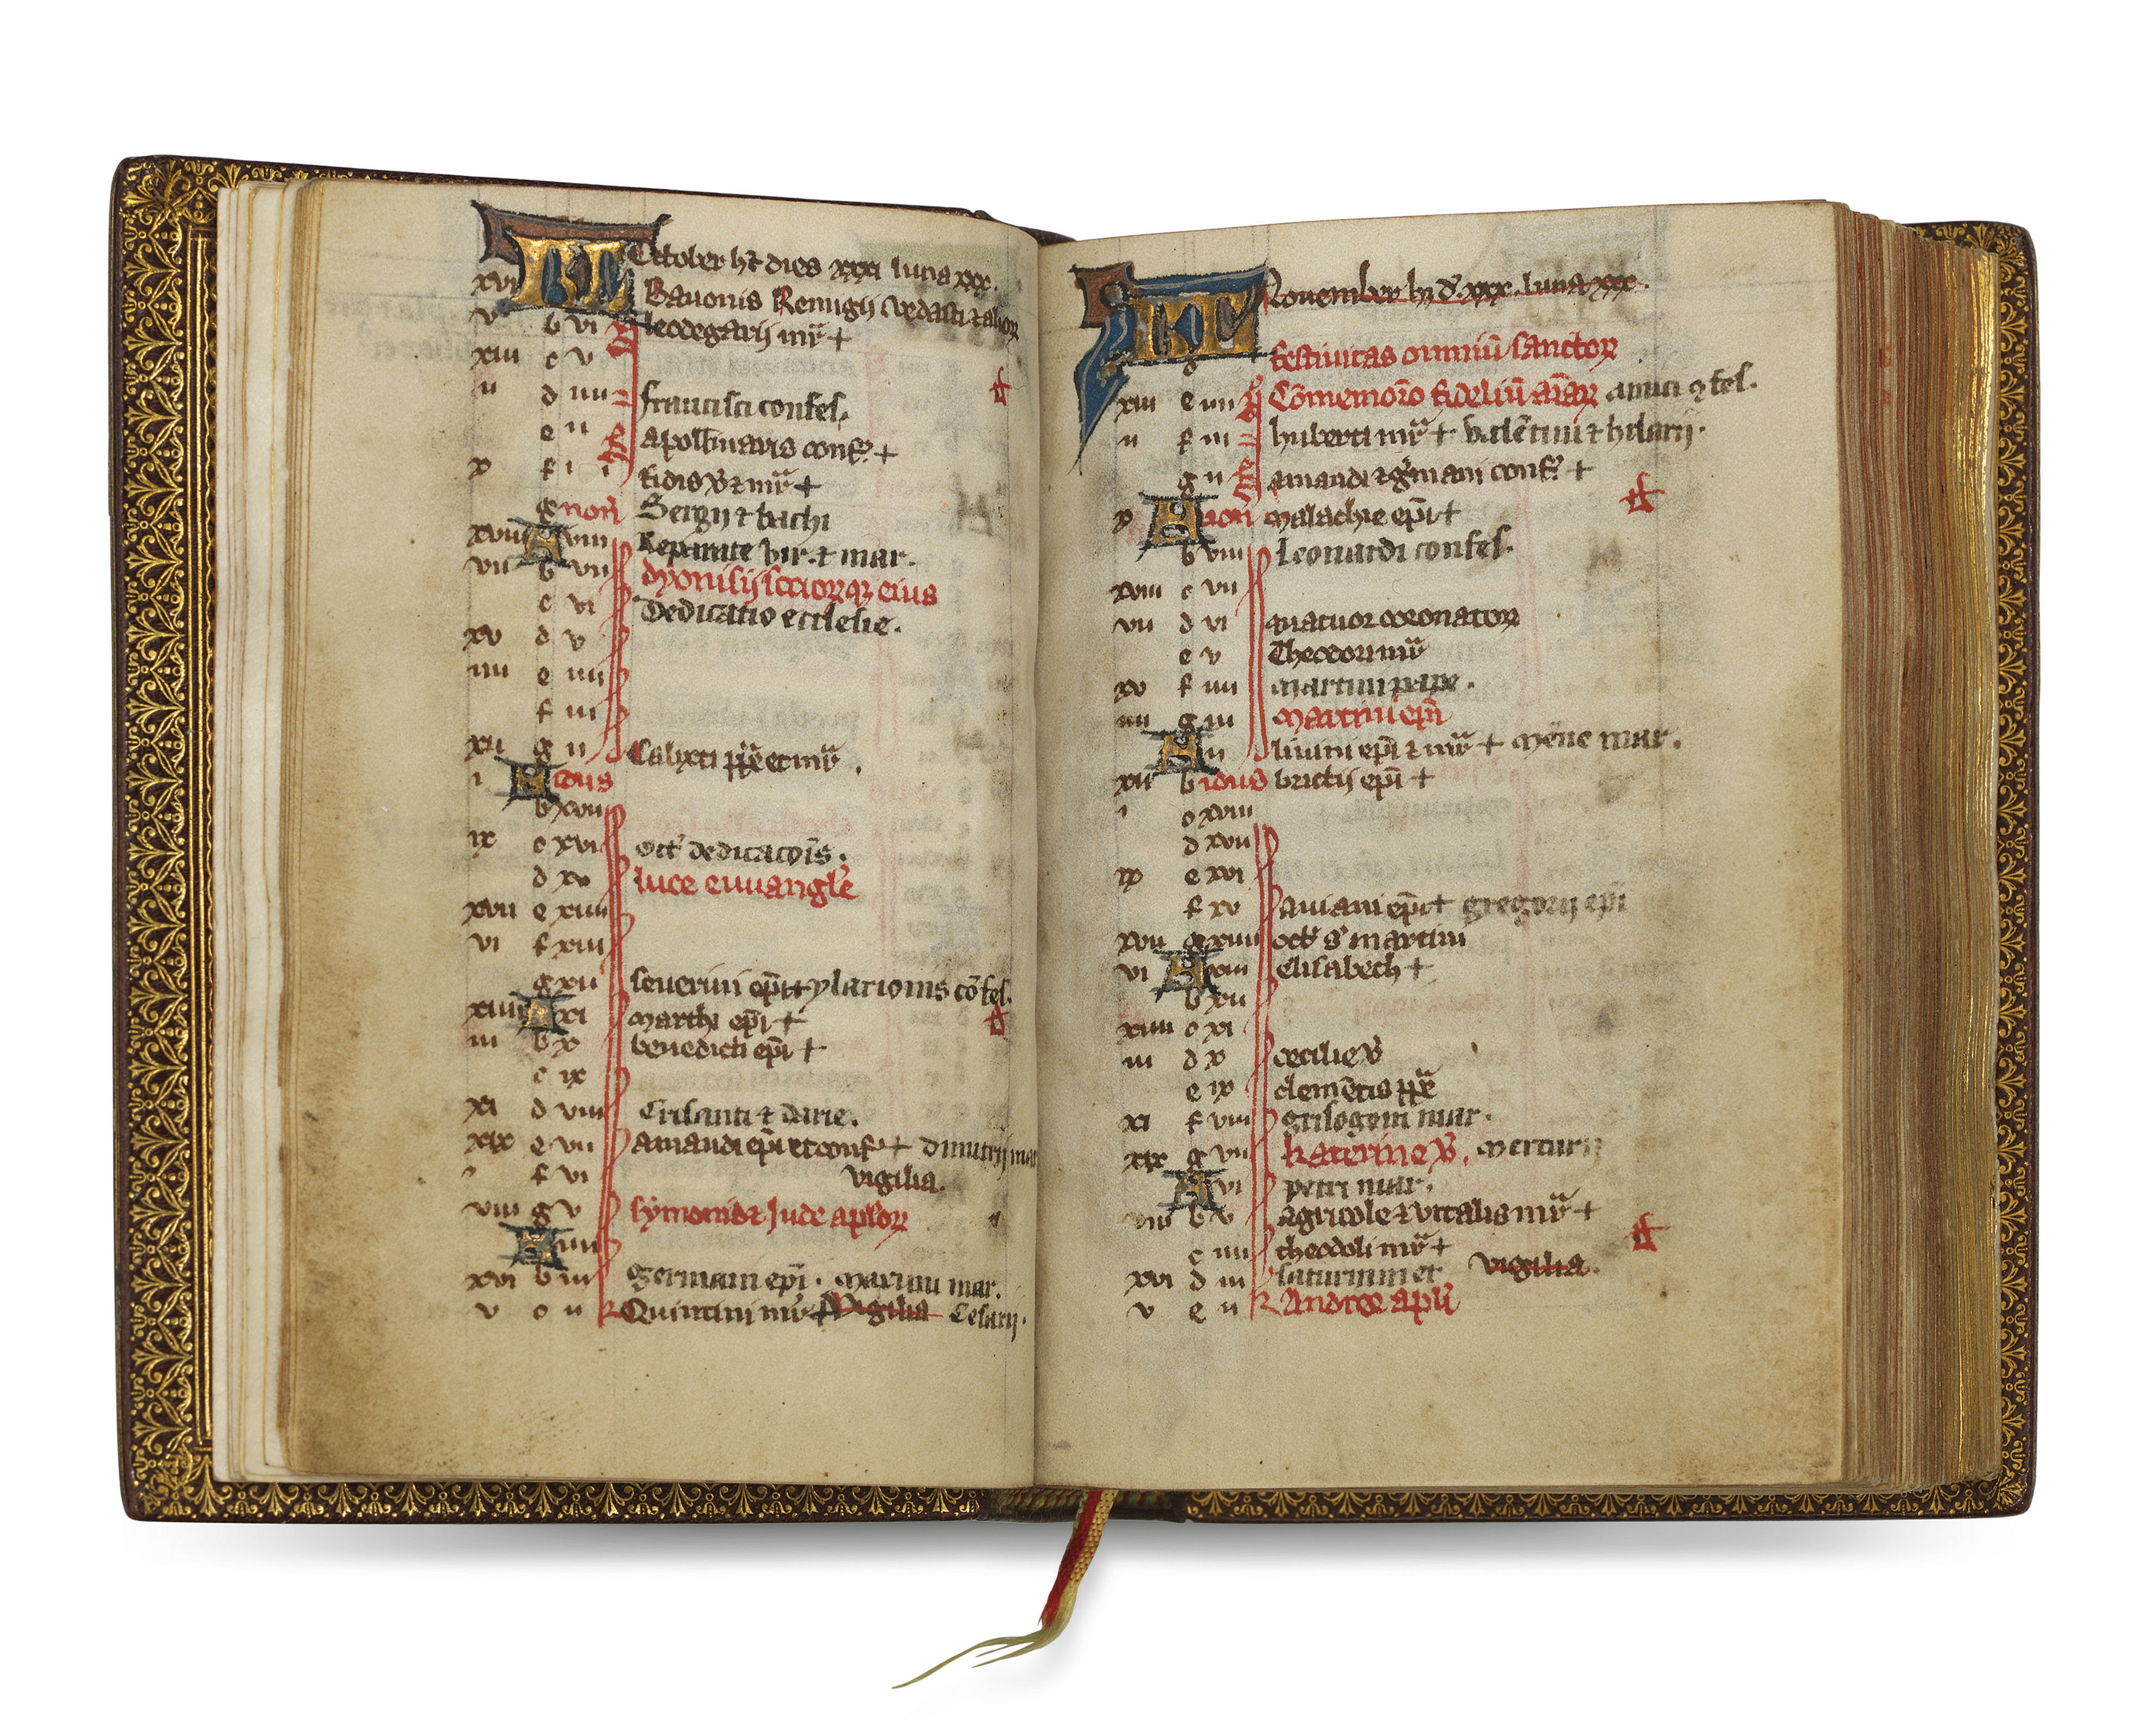 KL October ht dies xxxi luna xxx.
xvi Bauonis Remigij Vedasti & alior
v b vi leodegarij mr +
xiii c v
ii d iiii francisci confes.
e ii apollinaris conf. +
x f i i fidis v & mr +
g non Sergij & bachi
xviii A viii Reparate vir. & mar.
vii b vii dyonisij socior q eius
c vi Dedicatio ecclesie.
xv d v
iiii e iiii
f iii
xii g ii Calixti pp et mr.
i A idus
b xvii
ix c xvi oct dedicacois.
d xv luce euuangle
xvii e xiiii
vi f xiii
g xii seuerini epi + ylarionis cofes.
xiiii A xi marchi epi +
iii b x benedicti epi +
c ix
xi d viii Crisanti & darie.
xix e vii amandi epi et conf + dimitrij mar
f vi vigilia.
viii g v symonis & Jude aplor
A iiii
xvi b iii germani epi. maximi mar.
v c ii Quintini mr + Vigilia Cesarij.
KL Nouember h d. xxx. luna xxx.
festiuitas omniu sanctor
xiii e iiii Comemoro fideliu aiar amici 9fes.
ii f iii huberti mr + valetini & hilarij.
g ii amandi & gmani conf +
x A non malachie epi +
b viii Leonardi confes.
xviii c vii
vii d vi quatuor coronator
e v Theodori mr
xv f iiii martini pape.
iiii g iii martini epi
A ii liuini epi & mr + mene mar.
xii b idus brictij epi +
i c xviii
d xvii
ix e xvi
f xv aniani epi + gregorij epi
xvii g xiiii oct s martini
vi A xiii elisabech +
b xii
xiiii c xi
iii d x cecilie v
e ix clemetis pp
xi f viii grisogoni mar.
xix g vii katerine v. mercurij
A vi petri mar.
viii b v agricole & vitalis mr +
c iiii theodoli mr +
xvi d iii saturnini et vigilia.
v e ii Andree apli